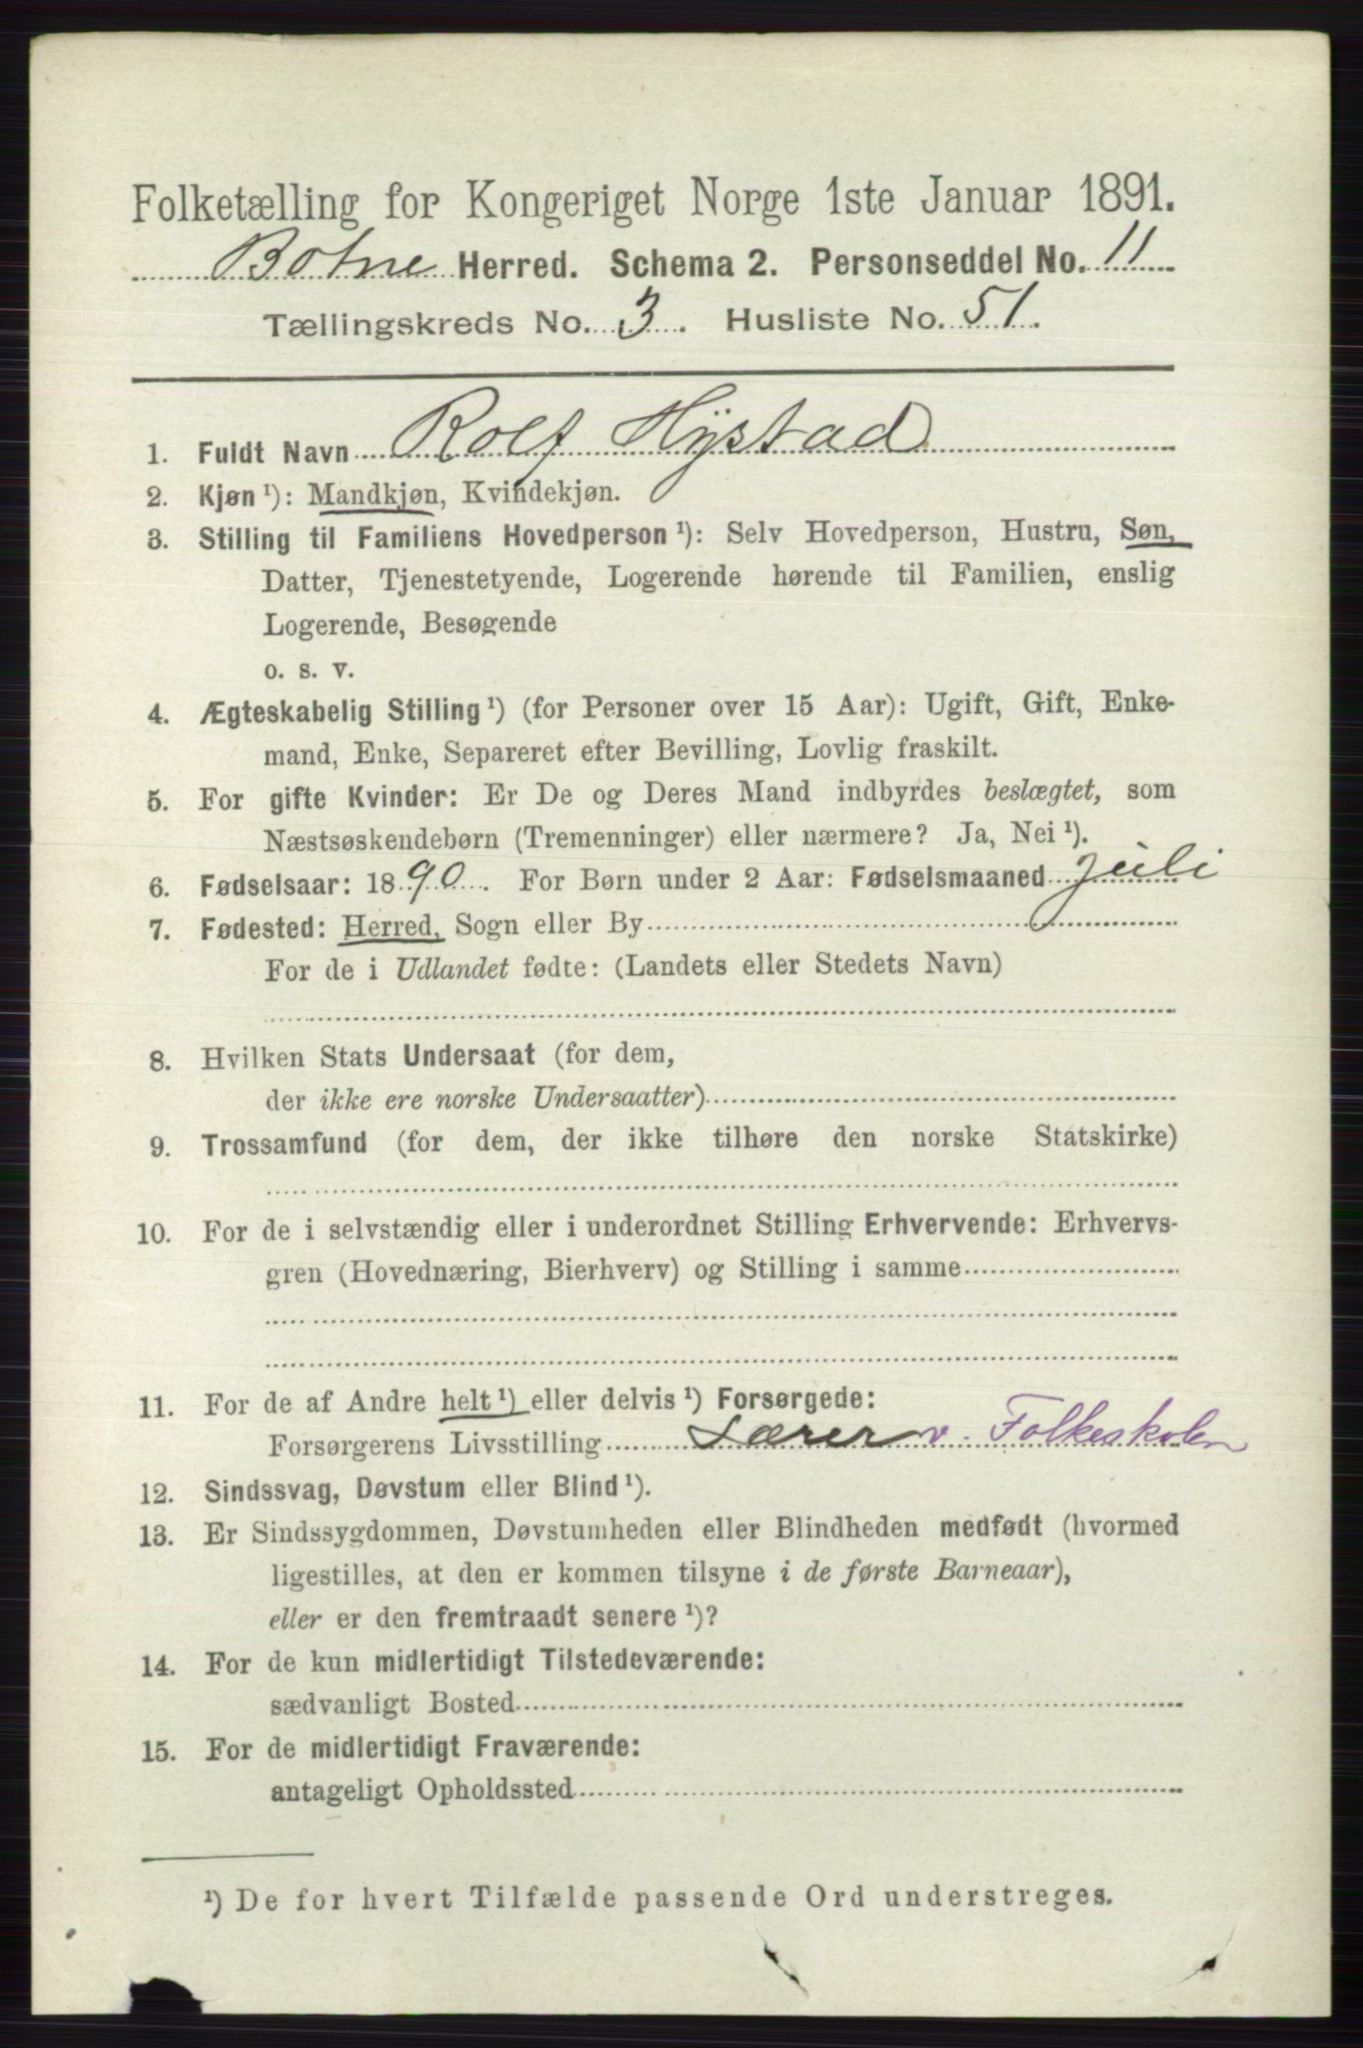 Folketælling for Kongeriget Norge 1ste Januar 1891.
Botne Herred. Schema 2. Personseddel No. 11
Tællingskreds No. 3. Husliste No. 51.
1. Fuldt Navn Rolf Hÿstad
2. Kjøn ¹): Mandkjøn, Kvindekjøn.
3. Stilling til Familiens Hovedperson ¹): Selv Hovedperson, Hustru, Søn,
Datter, Tjenestetyende, Logerende hørende til Familien, enslig
Logerende, Besøgende
o. s. v.
4. Ægteskabelig Stilling ¹) (for Personer over 15 Aar): Ugift, Gift, Enke-
mand, Enke, Separeret efter Bevilling, Lovlig fraskilt.
5. For gifte Kvinder: Er De og Deres Mand indbyrdes beslægtet, som
Næstsøskendebørn (Tremenninger) eller nærmere? Ja, Nei ¹).
6. Fødselsaar: 1890. For Børn under 2 Aar: Fødselsmaaned Juli
7. Fødested: Herred, Sogn eller By
For de i Udlandet fødte: (Landets eller Stedets Navn)
8. Hvilken Stats Undersaat (for dem,
der ikke ere norske Undersaatter)
9. Trossamfund (for dem, der ikke tilhøre den norske Statskirke)
10. For de i selvstændig eller i underordnet Stilling Erhvervende: Erhvervs-
gren (Hovednæring, Bierhverv) og Stilling i samme
11. For de af Andre helt ¹) eller delvis ¹) Forsørgede:
Forsørgerens Livsstilling Lærer v. Folkeskolen
12. Sindssvag, Døvstum eller Blind ¹).
13. Er Sindssygdommen, Døvstumheden eller Blindheden medfødt (hvormed
ligestilles, at den er kommen tilsyne i de første Barneaar),
eller er den fremtraadt senere ¹)?
14. For de kun midlertidigt Tilstedeværende:
sædvanligt Bosted
15. For de midlertidigt Fraværende:
antageligt Opholdssted
¹) De for hvert Tilfælde passende Ord understreges.